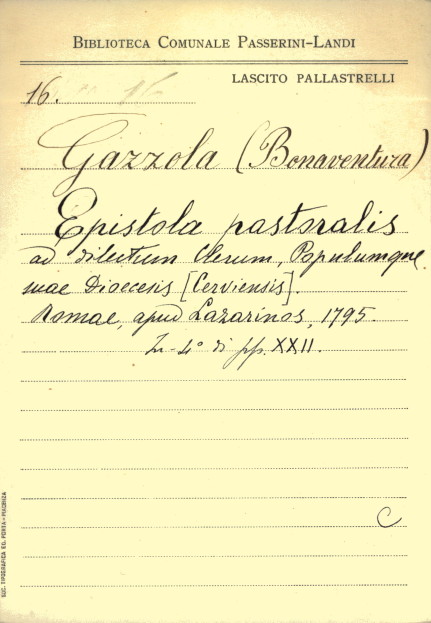 BIBLIOTECA COMUNALE PASSERINI-LANDI
LASCITO PALLASTRELLI
16.
Gazzola (Bonaventura)
Epistola pastoralis
ad dilectum Clerum, Populumque
suae Dioecesis [Cerviensis].
Romae, apud Lazarinos, 1795.
In-4° di pp. XXII.
C
SOC. TIPOGRAFICA ED. PORTA-PIACENZA